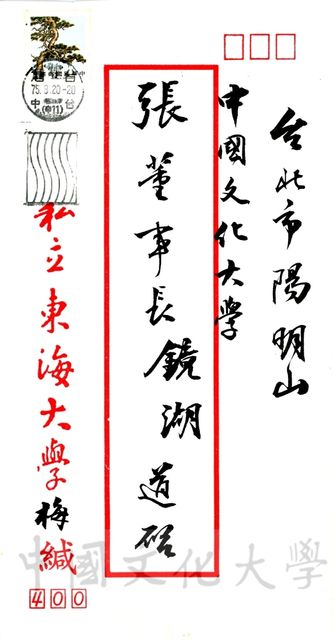 台北市陽明山
中國文化大學
張董事長鏡湖道啓
私立東海大學梅緘
400
台中
75.8.20-20
中國文化大學